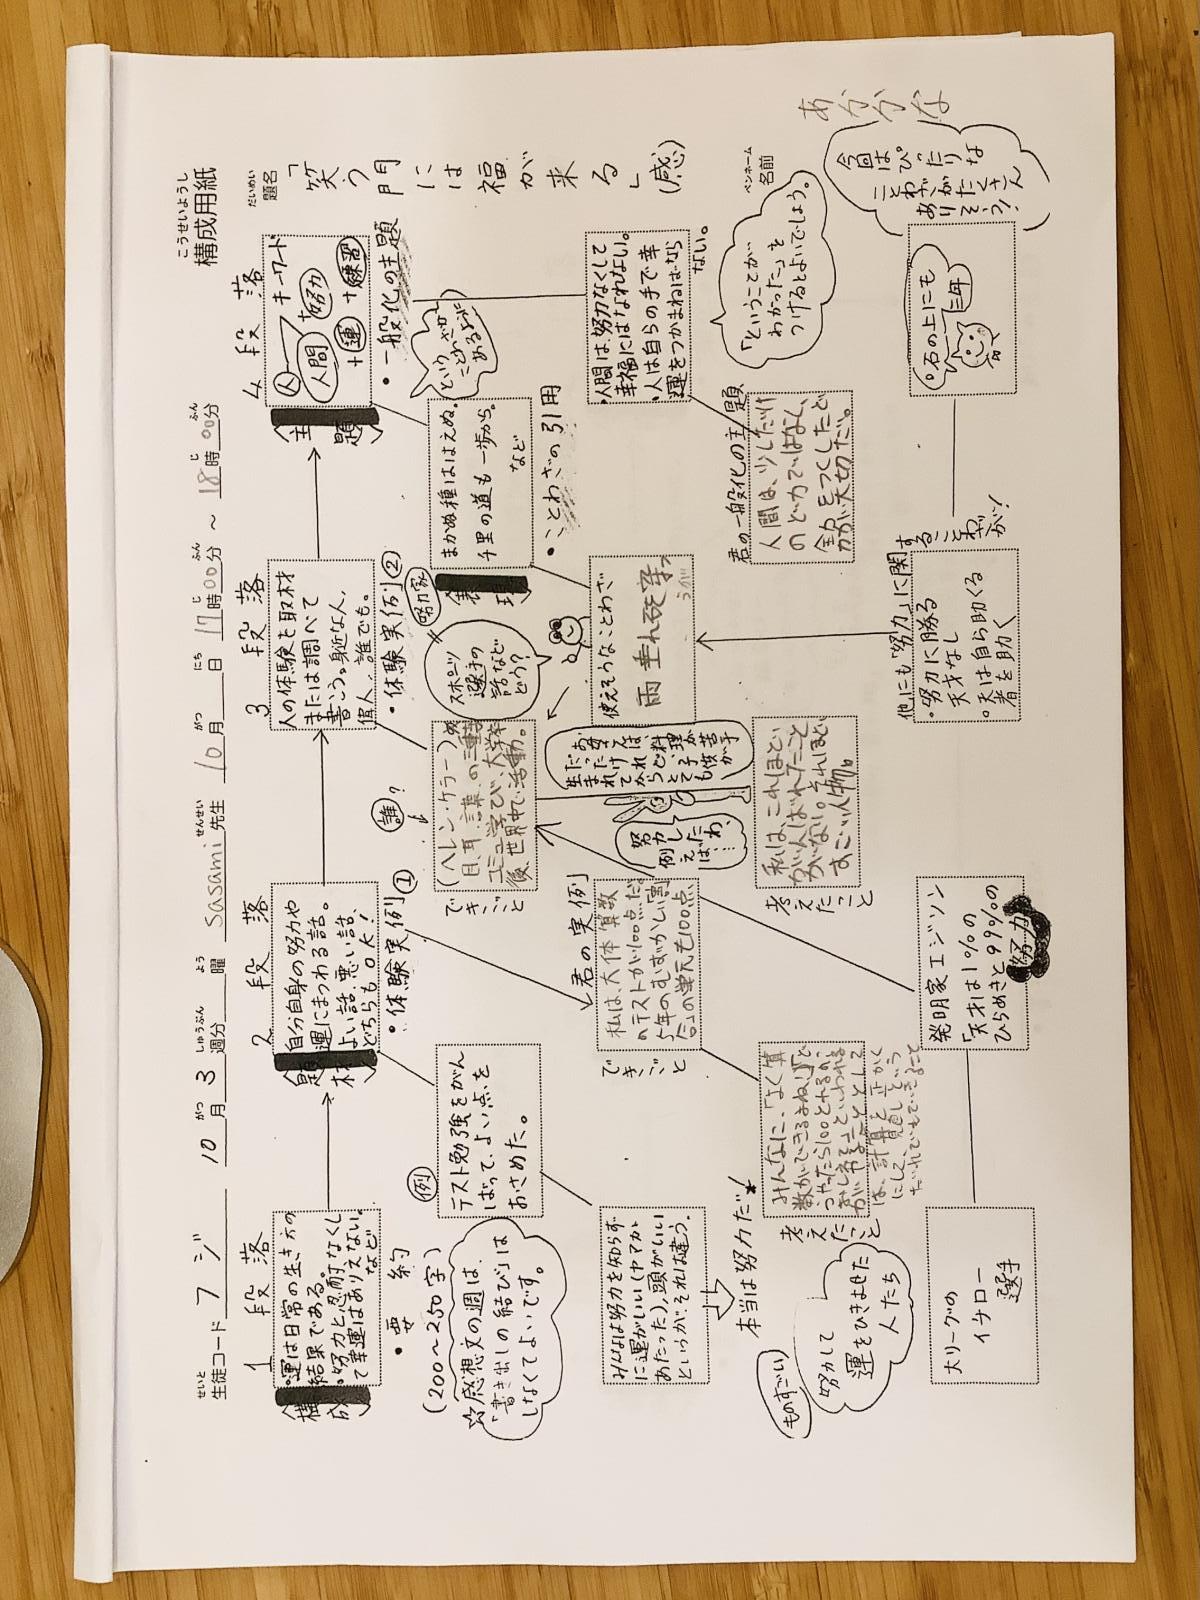 こうせいようし
構成用紙
せいと
生徒コード フジ
10月3週分
がつ しゅうぶん よう
曜
Sasami先生
せんせい
10月 日 17時00分～18時00分
がつ にち じ ふん じ ふん
だいめい
題名
「笑う門には福が来る」(感)
ペンネーム
名前
あかかな
1段落
構成
・運は日常の生き方の
結果である。
・努力と忍耐なくし
て幸運はありえない。
など
・要約
(200～250字)
☆感想文の週は、
「書き出しの結び」は
しなくてよいです。
みんなは努力を知らず
に運がいい(ヤマかし
あたった)、頭がいい
というが、それは違う。
本当は努力だ!
ものすごい
努力して
運をひきよせた
人たち
大リーグの
イチロー
選手
2段落
題材
自分自身の努力や
運にまつわる話。
よい話、悪い話、
どちらもOK!
・体験実例①
例
テスト勉強をがん
ばって、よい点を
おさめた。
君の実例
できごと
私は、大体算数
のテストが100点だ。
5年のむずかしい割
合の単元も100点
考えたこと
みんなに、「よく算
数ができるよね!」「ど
うやったら100とれるの、
おしえて」といわれる
は、計算を正かく
にして、見直しという
だれでもできること
発明家エジソン
「天才は1%の
ひらめきと99%の
努力」
3段落
人の体験を取材
または調べて
書こう。身近な人、
偉人、誰でも。
・体験実例②
努力家
スポーツ
選手の
話など
どう?
誰?
できごと
(ヘレン・ケラー)
目、耳、話の三重
学び、大学卒
後、世界中で活動。
お母さんは、
料理が苦手
だったけれど、
子供が
生まれてから
とても
努力し
た
例えば…
考えたこと
私は、これほどい
がんばれたこと
がない。それほど
すごい人物。
表現
使えそうなことわざ
雨垂れ石を穿つ
うが
他にも「努力」に関
することわざ
が!
・努力に勝る
天才なし
・天は自ら助くる
者を助く
4段落
主題
人
キーワード
人間
+努力
+運
+練習
・一般化の主題
という
ことわざが
あるように
まかぬ種ははえぬ。
千里の道も一歩から。
など
・ことわざの引用
・人間は、努力なくして
幸福にはなれない。
・人は自らの手で幸
運をつかまねばなら
ない。
「ということが
わかった」を
つけるとよいでしょう。
君の一般化の主題
人間は、少しだけ
のど力ではなく、
全力をつくしたど
力が大切だ。
・石の上にも
三年
今回は
ぴったりな
ことわざが
たくさん
ありそう!